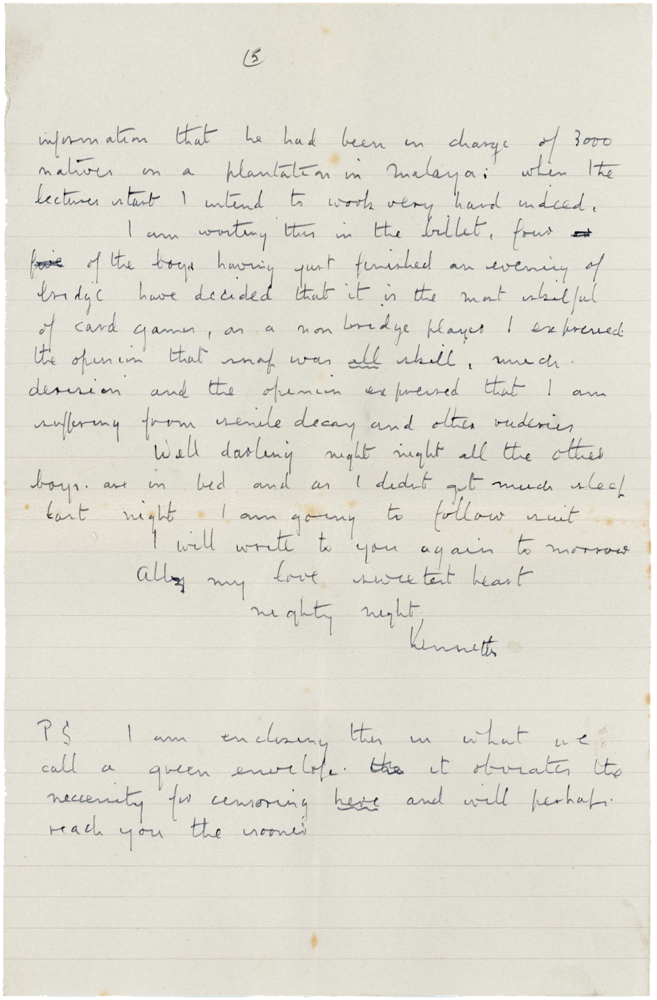 (5
information that he had been in charge of 3000
natives on a plantation in Malaya; when the
lectures start I intend to work very hard indeed.
I am writing this in the billet, four
five of the boys having just finished an evening of
bridge have decided that it is the most skilful
of card games, as a non bridge player I expressed
the opinion that snap was all skill, much
derision and the opinion expressed that I am
suffering from senile decay and other ruderies
Well darling night night all the other
boys. are in bed and as I didnt get much sleep
last night I am going to follow suit
I will write to you again to morrow
All my love sweetest heart
nighty night,
Kenneth
PS I am enclosing this in what we
call a green envelope. the it obviates the
necessity for censoring here and will perhaps.
reach you the sooner